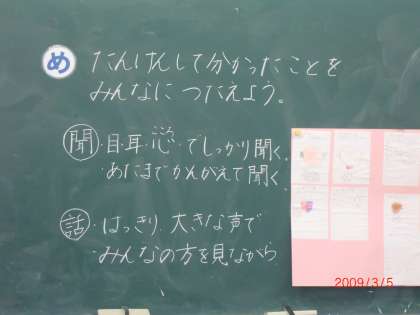 め たんけんして分かったことを
みんなに つたえよう。
聞・目・耳・心・でしっかり聞く。
・あたまでかんがえて聞く。
話・はっきり 大きな声で
・みんなの方を見ながら
2009/3/5